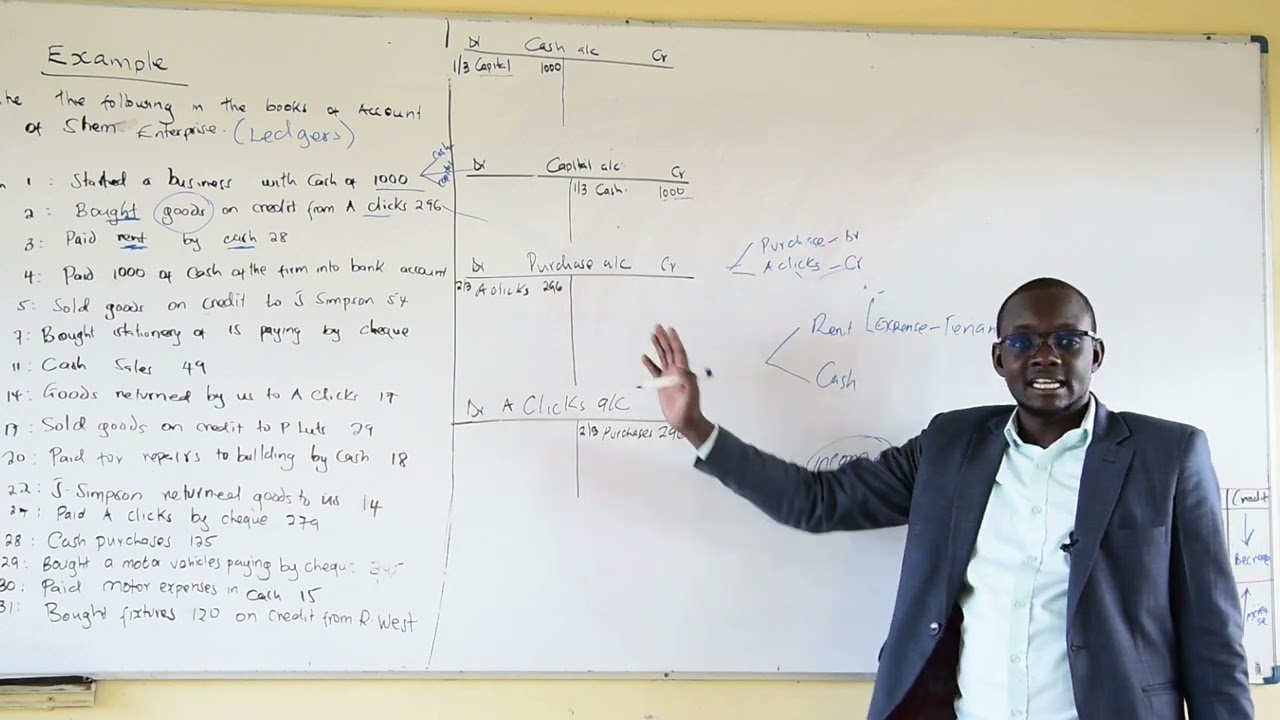 Example
the following in the books of Account
of Shem Enterprise. (Ledgers)
1: Started a business with Cash of 1000
2: Bought goods on credit from A clicks 296
3: Paid rent by cash 28
4: Paid 1000 of Cash of the firm into bank account
5: Sold goods on credit to J Simpson 54
7: Bought stationery of 15 paying by cheque
11: Cash Sales 49
14: Goods returned by us to A Clicks 17
17: Sold goods on credit to P Luts 29
20: Paid for repairs to building by Cash 18
22: J. Simpson returned goods to us 14
Paid A clicks by cheque 279
28: Cash purchases 125
29: Bought a motor vehicles paying by cheque
30: Paid motor expenses in Cash 15
31: Bought fixtures 120 on credit from R. West
Cash
Capital
Dr Cash a/c Cr
1/3 Capital 1000
Dr Capital a/c Cr
1/3 Cash 1000
Dr Purchase a/c Cr
2/3 A clicks 296
Dr A Clicks a/c
2/3 Purchases 296
Purchase - Dr
A clicks - Cr
Rent [Expense - Tenan
Cash
Incom
Credit